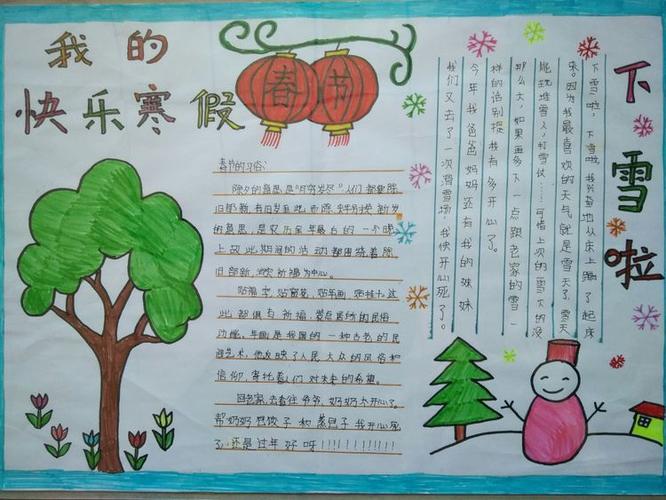 我的
快乐寒假
春节
春节的习俗:
除夕的意思是“月穷岁尽”人们都要除
旧部新有旧岁至此而除
的意思,是农历全年最后的一个晚
上故此期间的活动都围绕着除
旧部新,消灾祈福为中心。
贴福字,贴窗花,贴年画
此都具有祈福、装点居所的民俗
功能。年画是我国的一种古老的民
间艺术,他反映了人民大众的风俗和
信仰,寄托着人们对未来的希望。
回老家,去看往爷爷,奶奶太开心了。
帮奶奶包饺子和蒸包子我开心死
了,还是过年好呀!!!!!!!!!!!!
下雪啦
下雪啦,下雪啦,我兴奋地从床上蹦了起
来。因为我最喜欢的天气就是雪天了,雪天
能玩堆雪人,打雪仗……可惜上次的雪下的没
那么大,如果再多下一点跟老家的雪一
样的话别提我有多开心了。
今年我爸爸妈妈还有我的妹妹
我们又去了一次滑雪场,我快开心死了。